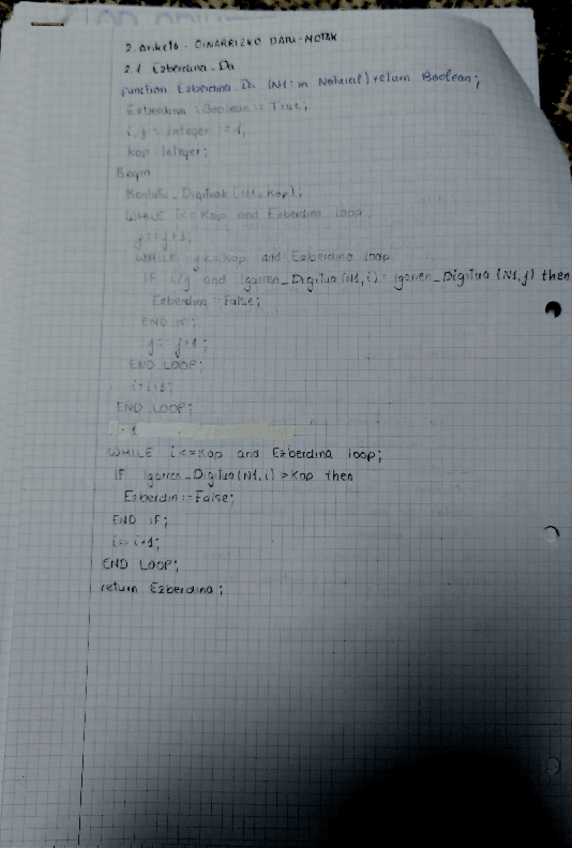 2. ariketa - OINARRIZKO DATU-MOTAK
2.1 Ezberdina_Da
function Ezberdina_Da (N1: in Natural) return Boolean;
Ezberdina : Boolean := True;
i, j : Integer := 1;
kop : Integer;
Begin
Kontatu_Digituak (N1, Kop);
WHILE i<=Kop and Ezberdina loop
j:=j+1;
WHILE j<=Kop and Ezberdina loop
IF i/j and Igarren_Digitua (N1, i) = Igarren_Digitua (N1, j) then
Ezberdina := False;
END IF;
j:= j+1;
END LOOP;
i:=i+1;
END LOOP;
WHILE i<=Kop and Ezberdina loop;
IF Igarren_Digitua (N1, i) > Kop then
Ezberdin := False;
END IF;
i:= i+1;
END LOOP;
return Ezberdina;